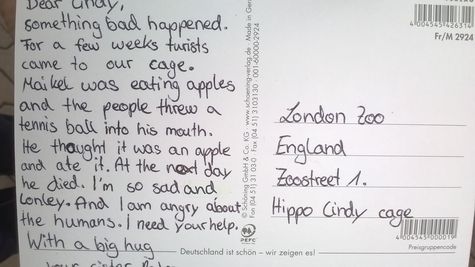 Dear Cindy,
something bad happened.
For a few weeks turists
came to our cage.
Maikel was eating apples
and the people threw a
tennis ball into his mouth.
He thought it was an apple
and ate it. At the next day
he died. I'm so sad and
lonley. And I am angry about
the humans. I need your help.
With a big hug
your sister
© Schöning GmbH & Co. KG · www.schoening-verlag.de · Made in Ger
Fon (04 51) 31 03 0 · Fax (04 51) 3103130 · 001-60000-2924
PEFC
4004545426314
Fr/M 2924
London Zoo
England
Zoostreet 1.
Hippo Cindy cage
4004545000019
Deutschland ist schön – wir zeigen es!
Preisgruppencode